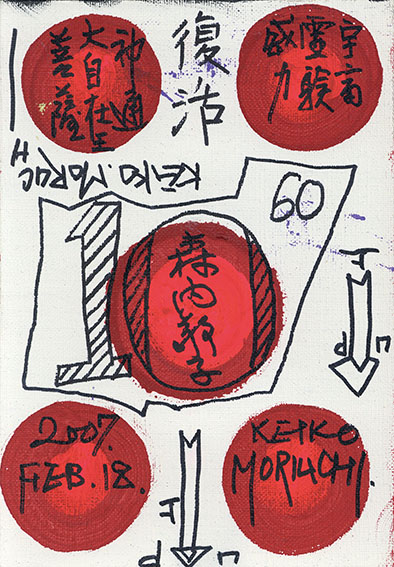 神通
大自在王
菩薩
復活
宇宙
霊験
威力
KEIKO.MORIUC
H
60
10
森内敬子
2007.
FEB.18.
KEIKO
MORIUCHI.